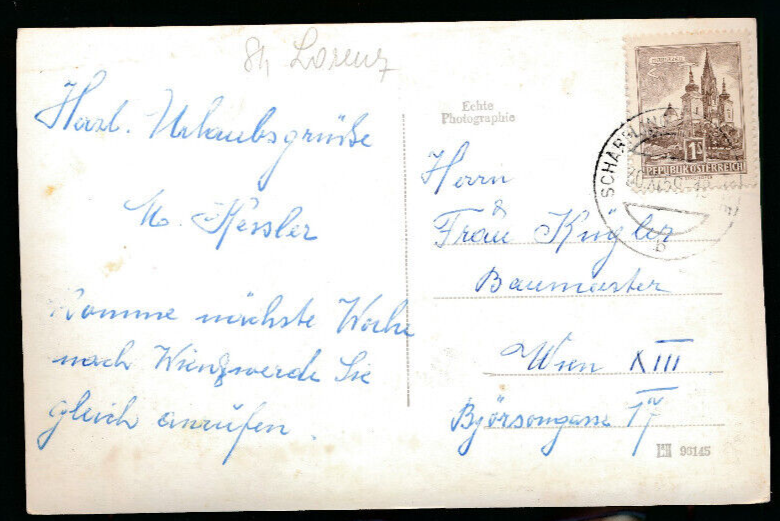 St. Lorenz
Herzl. Urlaubsgrüße
M. Kessler
Komme nächste Woche
nach Wien, werde Sie
gleich anrufen.
Echte
Photographie
Herrn
&
Frau Kugler
Baumeister
Wien XIII
Björsongasse 17
96145
1S
REPUBLIK ÖSTERREICH
SCHARFLING
b